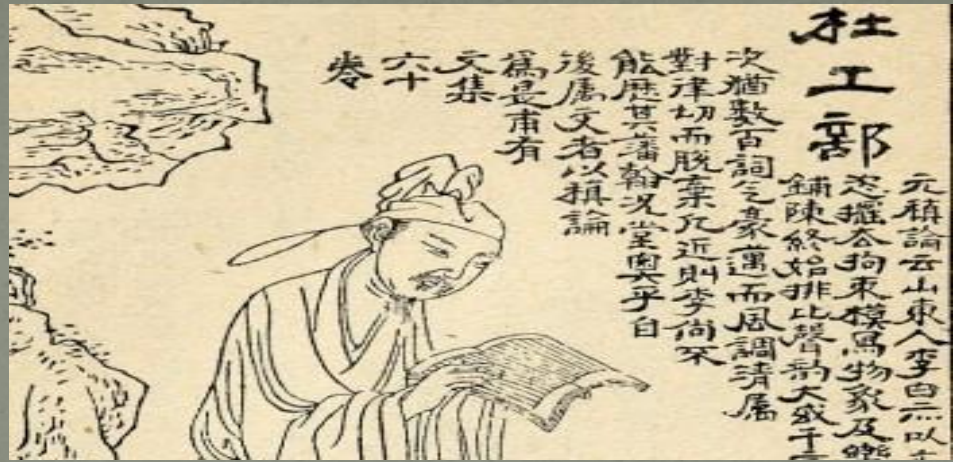 杜工部
元稹論云山東人李白亦以
恣擺去拘束模寫物象及
鋪陳終始排比聲韵大或千
次猶數百詞气豪邁而風調清属
對律切而脫棄凡近則李尚不
能歷其藩翰況堂奥乎自
後属文者以稹論
爲是甫有
文集
六十
卷